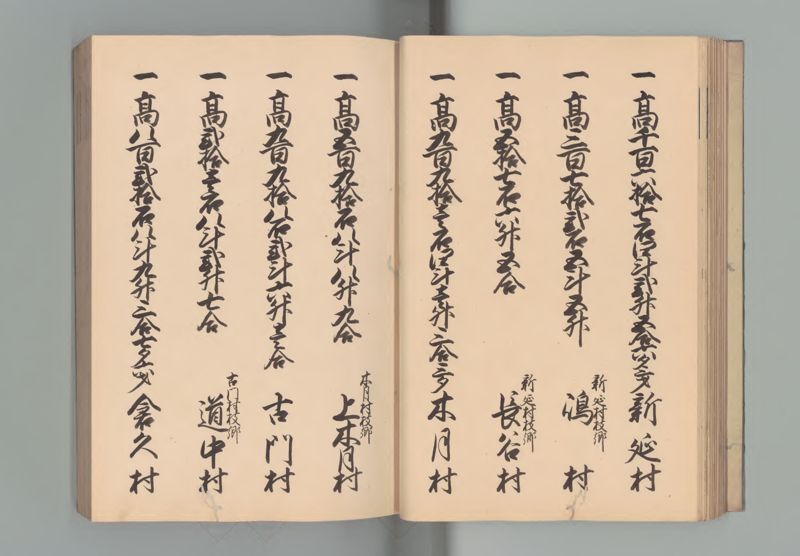 一 高千百六拾七石四斗弐升五合六夕八才 新延村
一 高三百七拾弐石五斗五升 新延村枝郷 鴻村
一 高五拾七石六升五合 新延村枝郷 長谷村
一 高九百九拾壱石四斗壱升三合三夕 木月村
一 高五百九拾石八斗八升九合 木月村枝郷 上木月村
一 高九百九拾八石弐斗六升壱合 古門村
一 高弐拾壱石八斗弐升七合 古門村枝郷 道中村
一 高八百弐拾石八斗九升三合七夕 倉久村